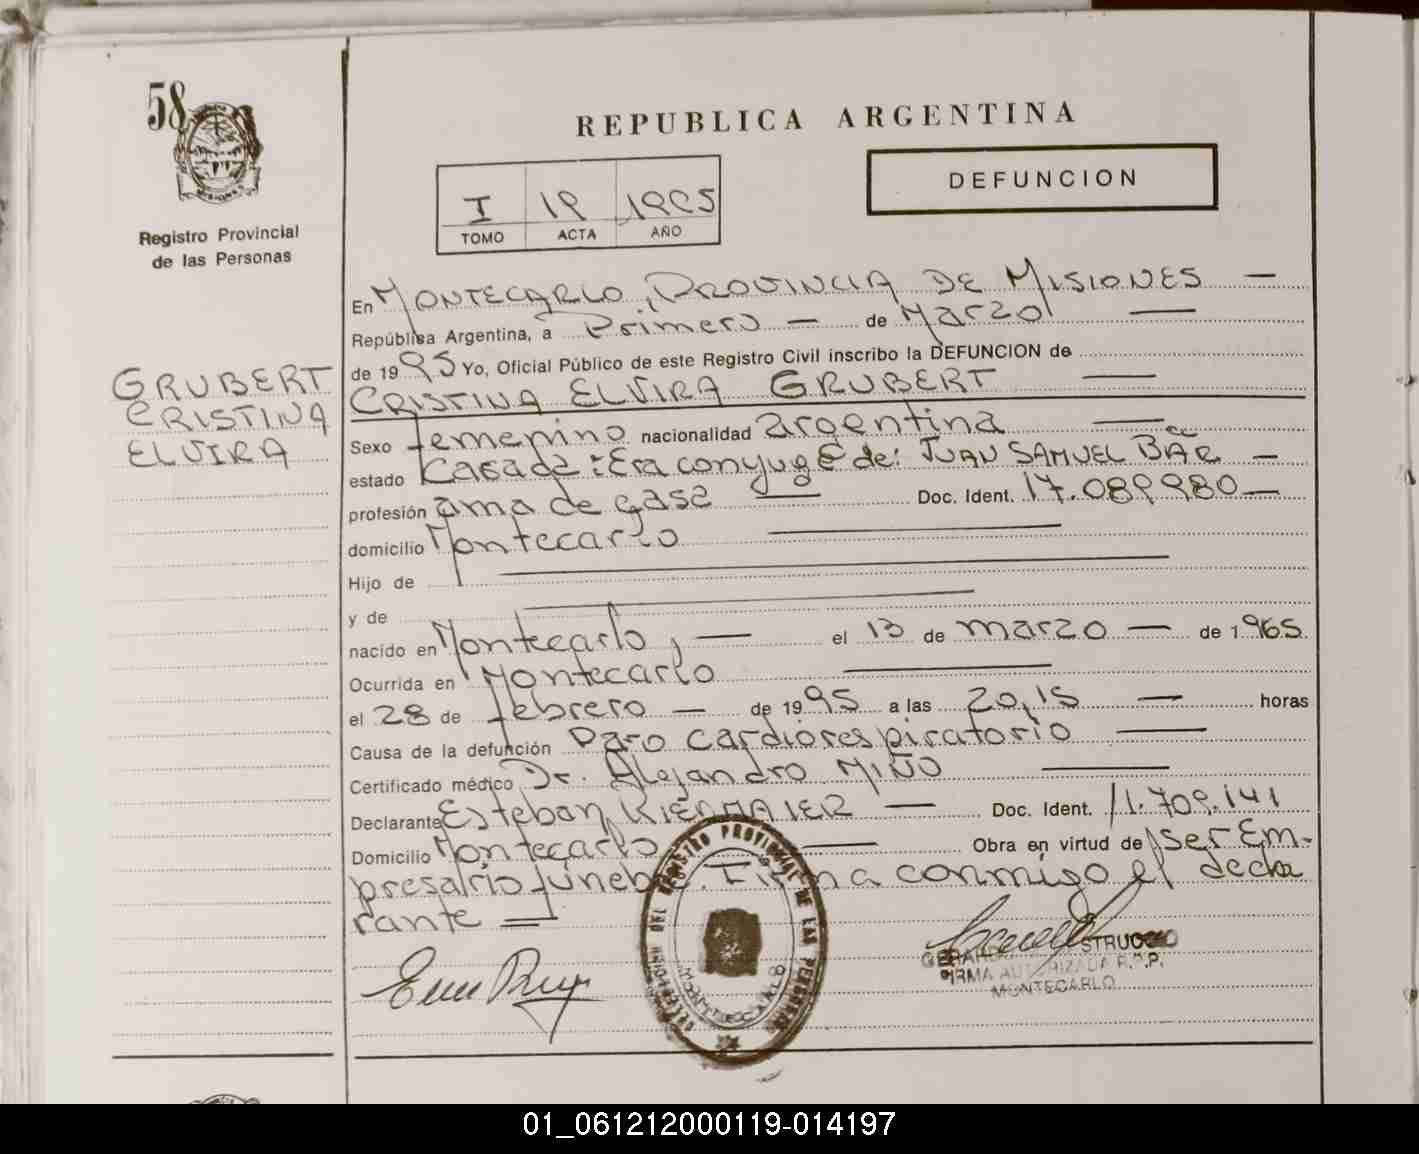 58
REPUBLICA ARGENTINA
DEFUNCION
I 19 1995
TOMO ACTA AÑO
Registro Provincial
de las Personas
GRUBERT
CRISTINA
ELVIRA
En MONTECARLO, PROVINCIA DE MISIONES —
República Argentina, a Primero — de Marzo —
de 1995 Yo, Oficial Público de este Registro Civil inscribo la DEFUNCION de
CRISTINA ELVIRA GRUBERT —
Sexo femenino nacionalidad argentina —
estado Casada: Era conyuge de: JUAN SAMUEL BÄR —
profesión ama de casa — Doc. Ident. 17.089.980 —
domicilio Montecarlo —
Hijo de —
y de —
nacido en Montecarlo, — el 13 de marzo — de 1.965
Ocurrida en Montecarlo —
el 28 de febrero — de 1995 a las 20,15 — horas
Causa de la defunción Paro cardiorespiratorio —
Certificado médico Dr. Alejandro MIÑO —
Declarante Esteban KIERMAIER — Doc. Ident. 11.709.141
Domicilio Montecarlo — Obra en virtud de ser Em-
presario fúnebre. Firma conmigo el decla
rante =
REGISTRO PROVINCIAL DE LAS PERSONAS
MONTECARLO
FIRMA AUTORIZADA R.P.P.
MONTECARLO
01_061212000119-014197